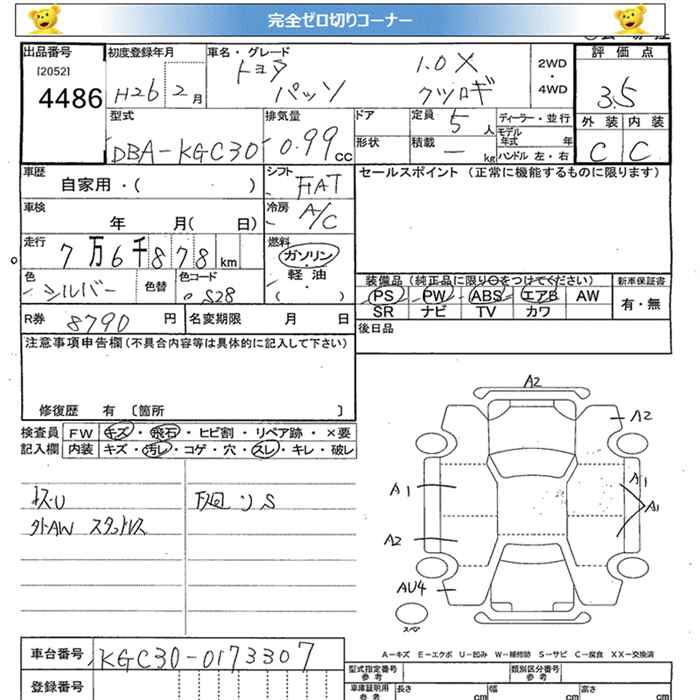 完全ゼロ切りコーナー
出品番号 初度登録年月 車名・グレード 2WD ・ 4WD 評価点
[2052] 4486 H26 2月 トヨタ パッソ 1.0X クツロギ 3.5
型式 排気量 ドア 定員 5人 ディーラー・並行 外装 内装
DBA-KGC30 0.99cc 形状 積載 ー kg モデル年式 年 ハンドル 左・右 C C
車歴 自家用・( ) シフト FAT セールスポイント (正常に機能するものに限ります)
車検 年 月( 日) 冷房 A/C
走行 7万6千878km 燃料 ガソリン・軽油 ( )
色 シルバー 色替 色コード S28
装備品 (純正品に限り○をつけてください) 新車保証書
PS PW ABS エアB AW 有・無
SR ナビ TV カワ
R券 8790円 名変期限 月 日 後日品
注意事項申告欄 (不具合内容等は具体的に記入して下さい)
修復歴 有 〔箇所 〕
検査員 FW キズ・飛石・ヒビ割・リペア跡・×要
記入欄 内装 キズ・汚レ・コゲ・穴・スレ・キレ・破レ
A2
A2
A1 A1 A1
A2
AU4
スペア
キズU 下廻りS
外AW スタッドレス
A－キズ E－エクボ U－凹み W－補修跡 S－サビ C－腐食 XX－交換済
車台番号 KGC30-0173307
型式指定番号 参考 類別区分番号 参考
登録番号
車庫証明用 参考 長さ cm 幅 cm 高さ cm